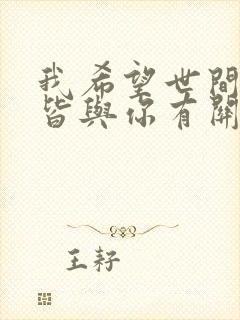 我希望世間
皆與你有關
王耔